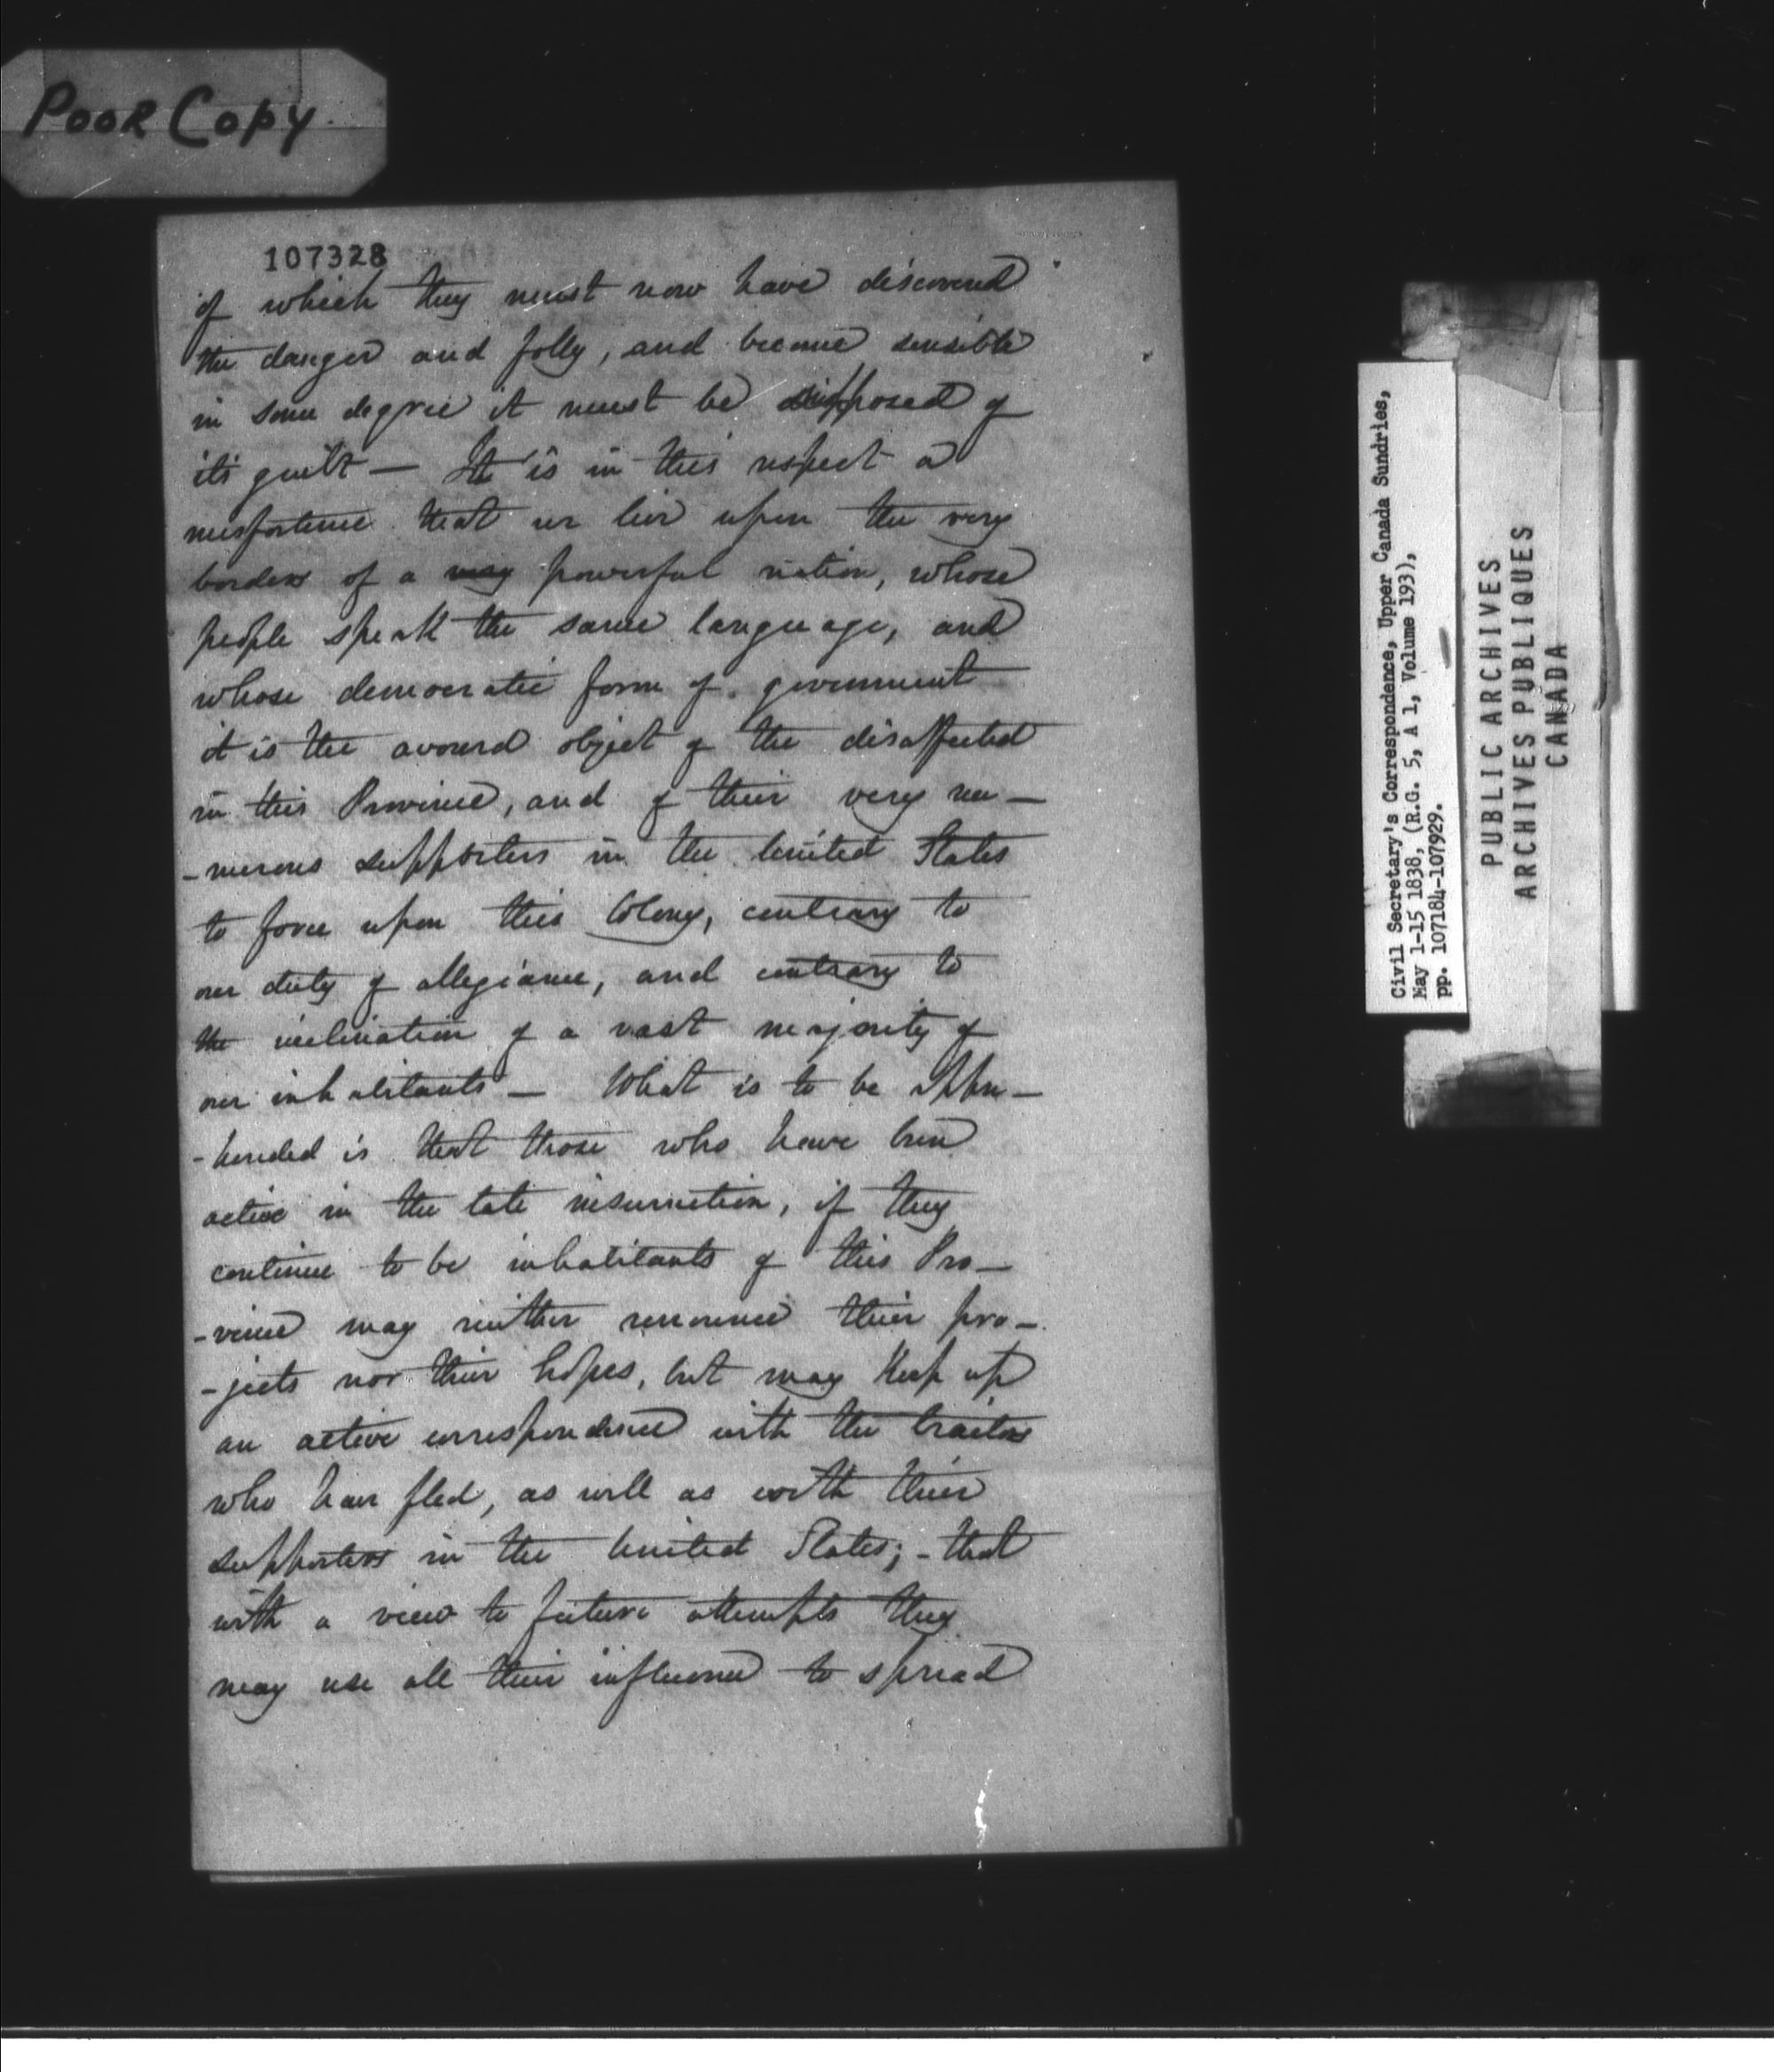 Poor Copy
107328
of which they must now have discovered
the danger and folly, and become sensible
in some degree it must be supposed of
its guilt — It is in this respect a
misfortune that we live upon the very
borders of a very powerful nation, whose
people speak the same language, and
whose democratic form of government
it is the avowed object of the disaffected
in this Province, and of their very nu—
-merous supporters in the United States
to force upon this Colony, contrary to
our duty of allegiance, and contrary to
the inclination of a vast majority of
our inhabitants — What is to be appre—
-hended is that those who have been
active in the late insurrection, if they
continue to be inhabitants of this Pro—
-vince may neither renounce their pro—
-jects nor their hopes, but may keep up
an active correspondence with the traitors
who have fled, as well as with their
supporters in the United States; - that
with a view to future attempts they
may use all their influence to spread
Civil Secretary's Correspondence, Upper Canada Sundries,
May 1-15 1838, (R.G. 5, A 1, Volume 193),
pp. 107184-107929.
PUBLIC ARCHIVES
ARCHIVES PUBLIQUES
CANADA